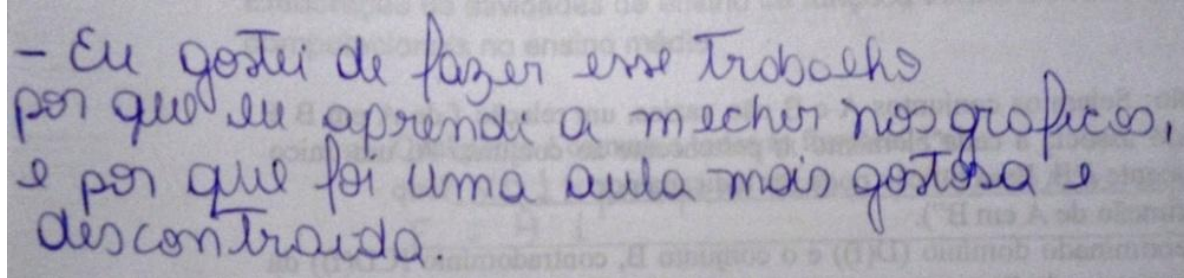 - Eu gostei de fazer esse trabalho
por que eu aprendi a mecher nos graficos,
e por que foi uma aula mais gostosa e
descontraida.